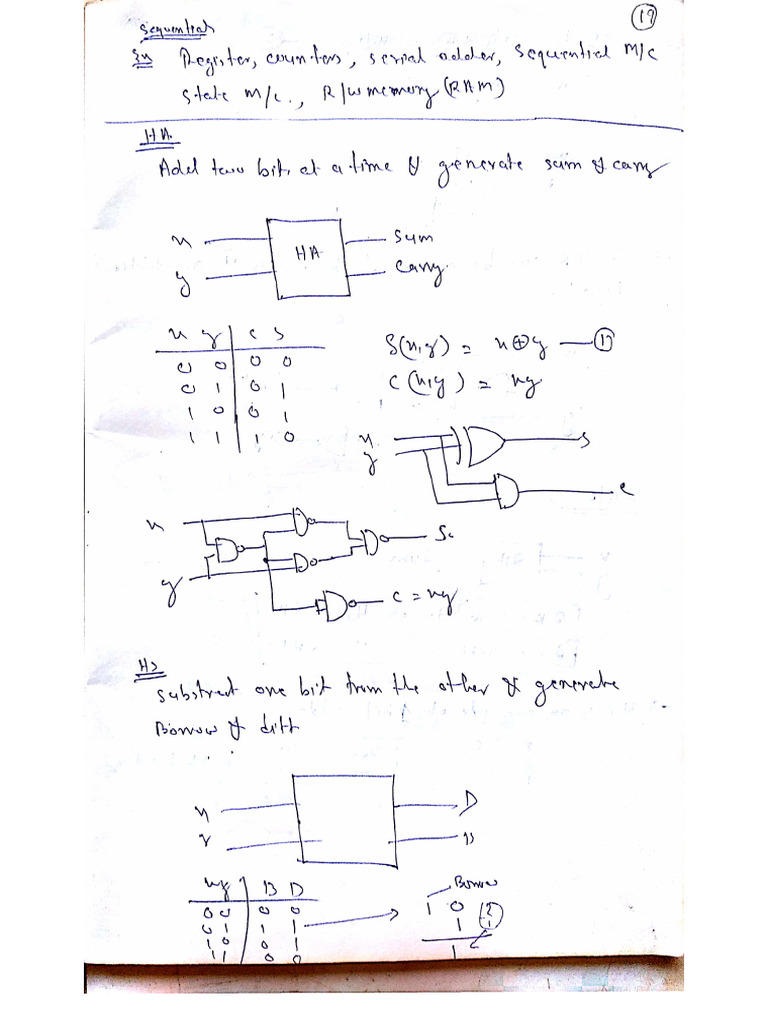 19
Sequential
Ex Register, counters, serial adder, Sequential M/c
State M/c., R/W memory (RAM)
HA
Add two bits at a time & generate sum & carry
x
y
HA
Sum
Carry
x y | C S
0 0 | 0 0
0 1 | 0 1
1 0 | 0 1
1 1 | 1 0
S(x,y) = x⊕y — 1
C(x,y) = xy
x
y
S
C
x
y
S
C = xy
HS
Substract one bit from the other & generate
Borrow & diff
x
y
D
B
xy | B D
00 | 0 0
01 | 1 1
10 | 0 1
11 | 0 0
Borrow
1 0
1
1